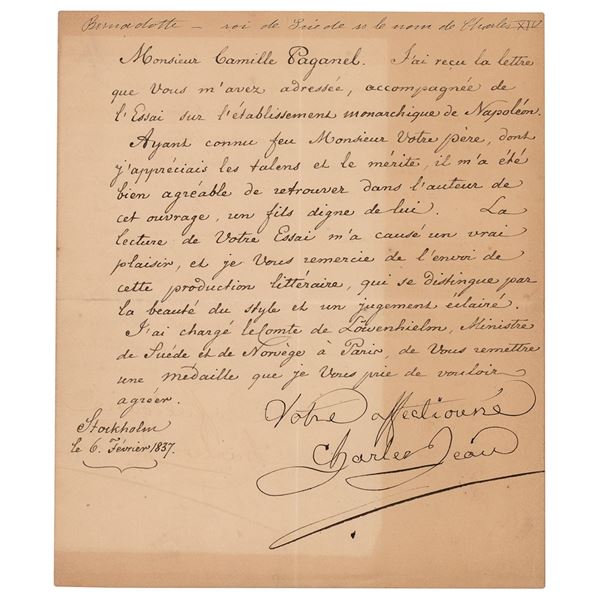 Bernadotte — roi de Suède s le nom de Charles XIV
Monsieur Camille Paganel. J'ai reçu la lettre
que Vous m'avez adressée, accompagnée de
l'Essai sur l'établissement monarchique de Napoléon.
Ayant connu feu Monsieur Votre père, dont
j'appréciais les talens et le mérite, il m'a été
bien agréable de retrouver dans l'auteur de
cet ouvrage, un fils digne de lui. La
lecture de Votre Essai m'a causé un vrai
plaisir, et je Vous remercie de l'envoi de
cette production littéraire, qui se distingue par
la beauté du style et un jugement éclairé.
J'ai chargé le Comte de Löwenhielm, Ministre
de Suéde et de Norvège à Paris, de Vous remettre
une medaille que je Vous prie de vouloir
agréer.
Votre affectionné
Charles Jean
Stockholm
le 6. Février 1837.